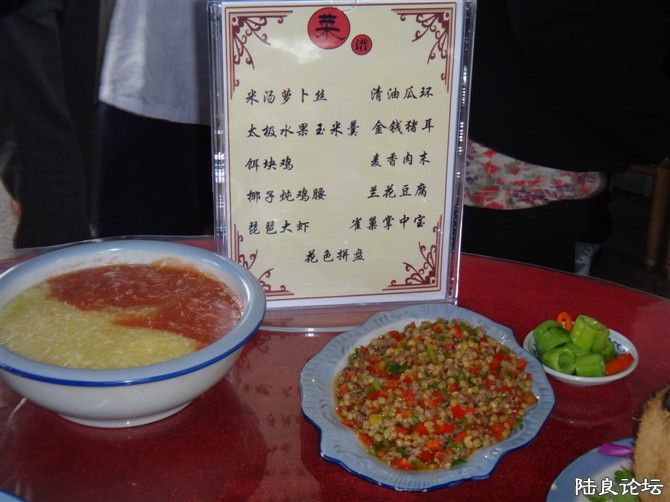 菜谱
米汤萝卜丝 清油瓜环
太极水果玉米羹 金钱猪耳
饵块鸡 麦香肉末
椰子炖鸡腰 兰花豆腐
琵琶大虾 雀巢掌中宝
花色拼盘
陆良论坛